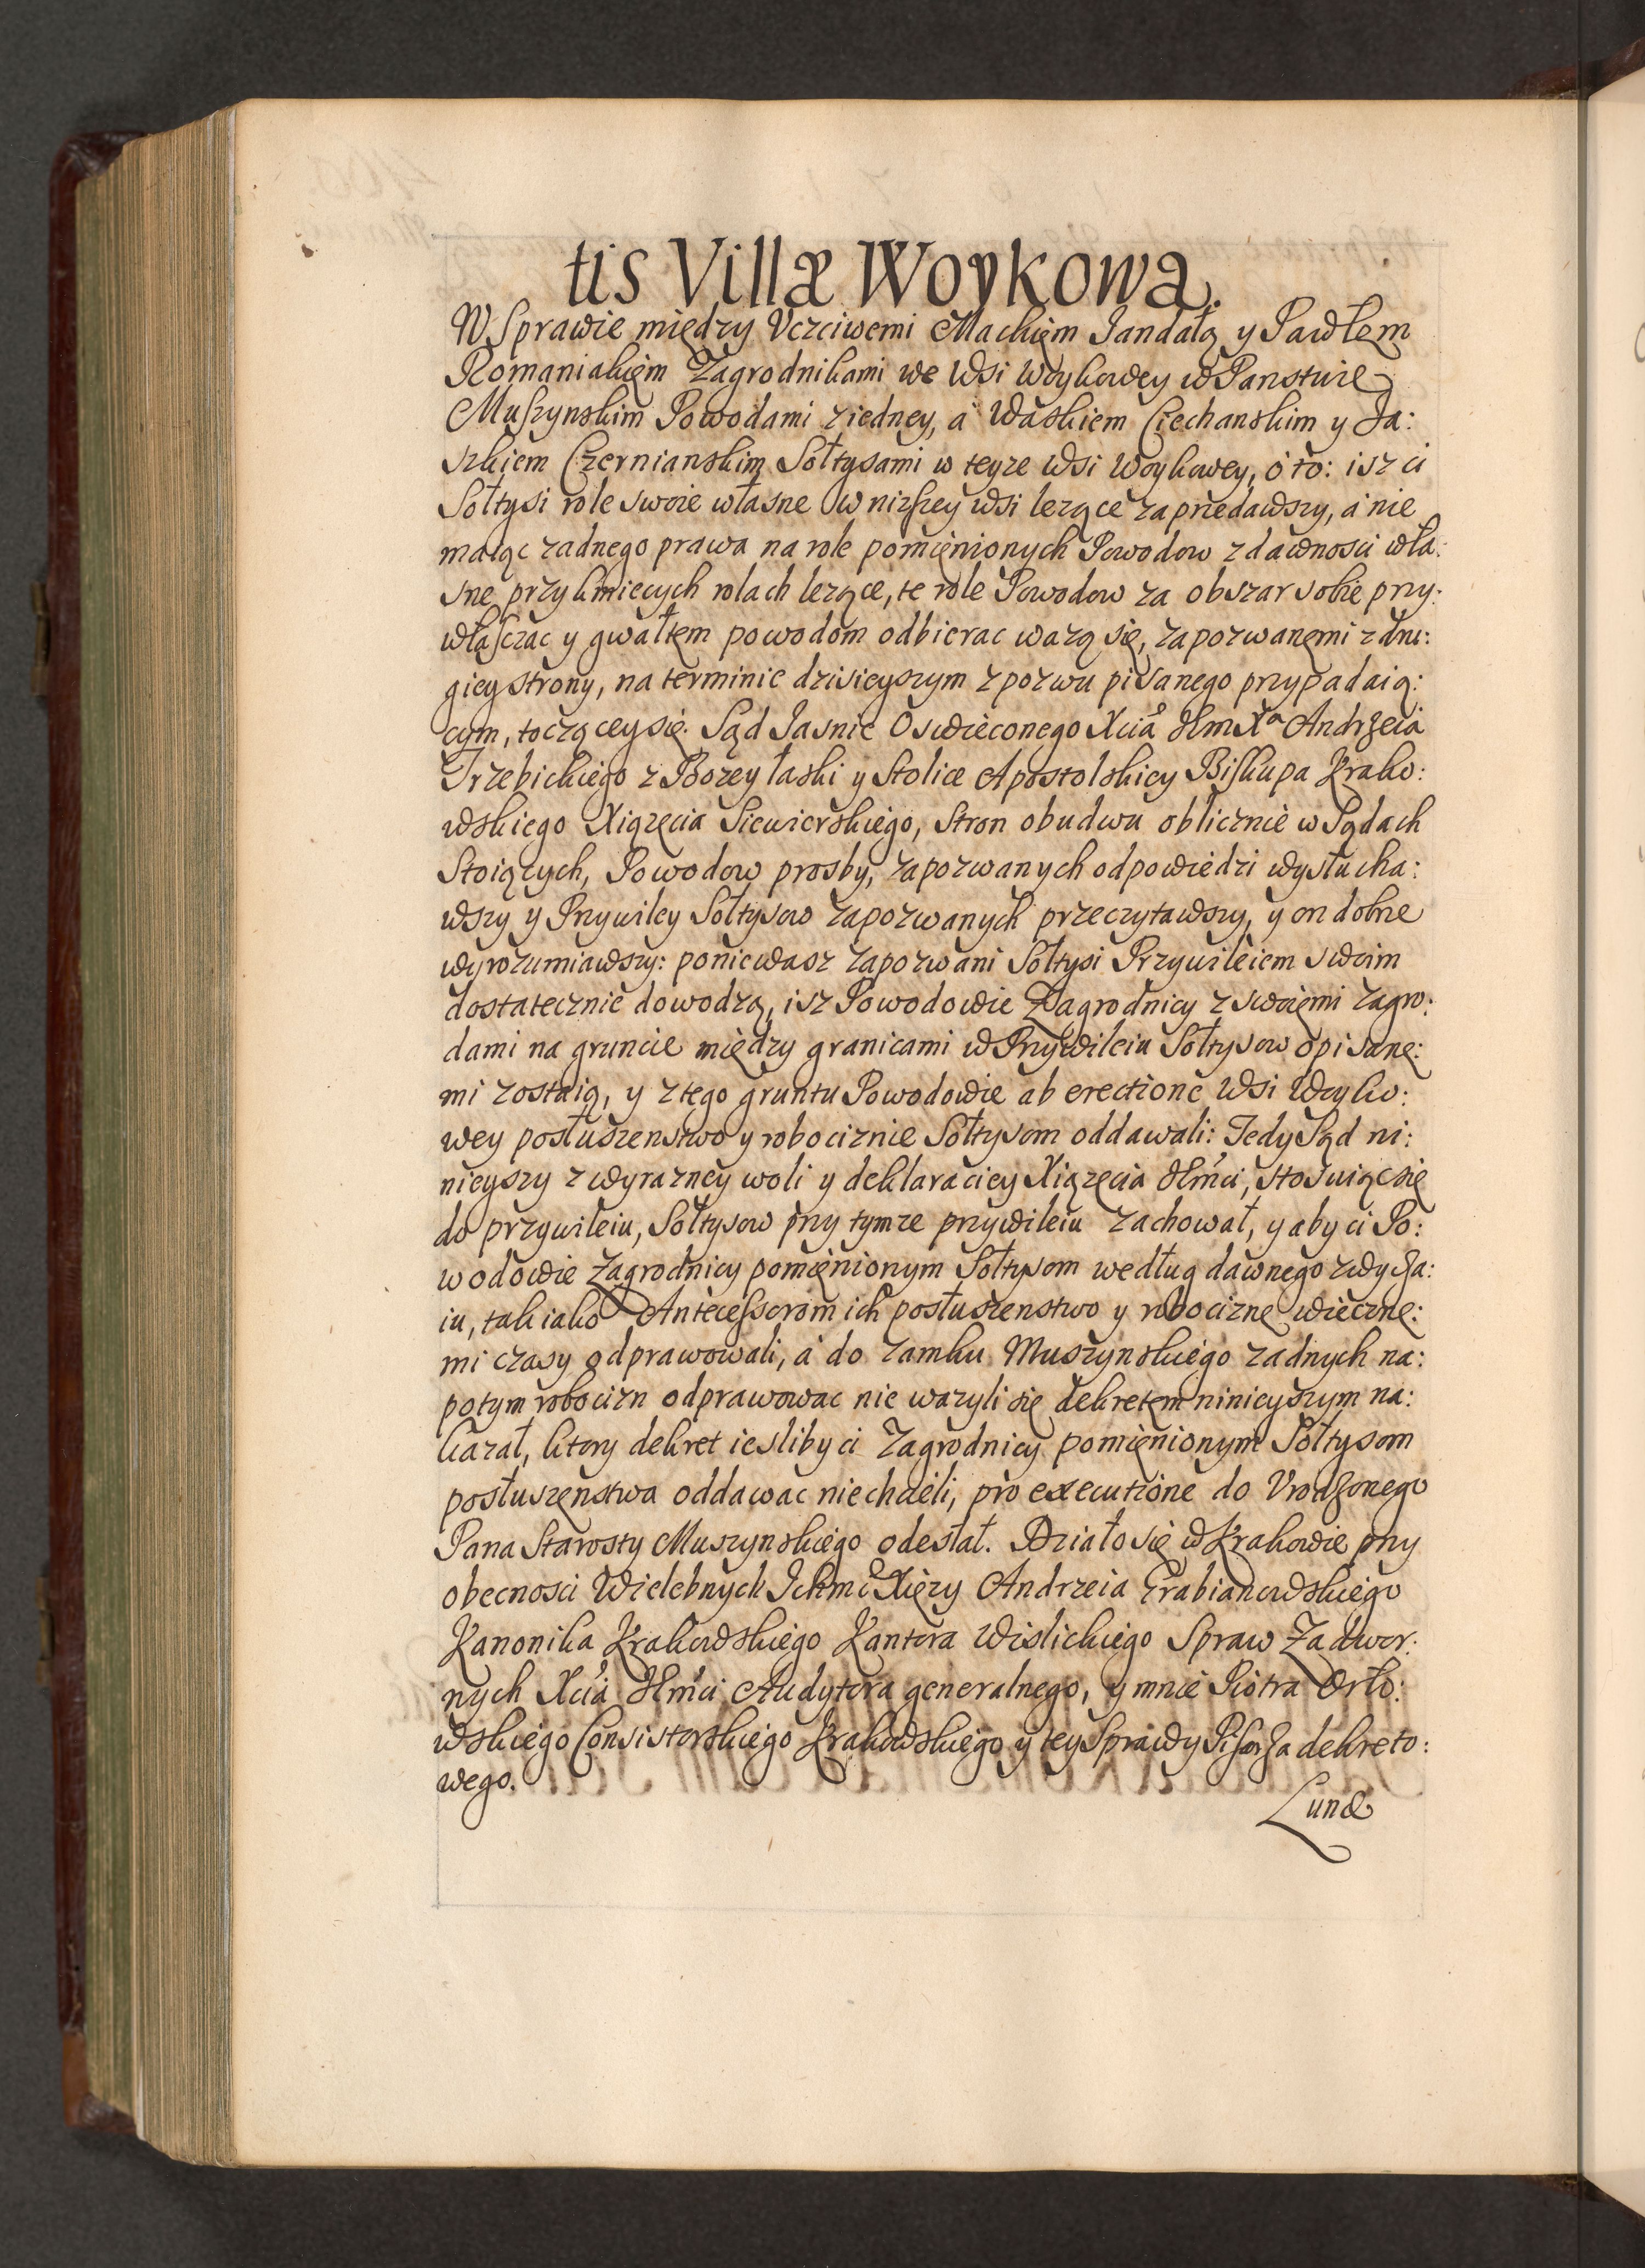 tis Villæ Woykowa.
W Sprawie między Vczciwemi Maćkięm Jandałą y Pawłem
Romaniakięm Zagrodnikami we Wsi Woykowey w Panstwie
Muszynskim Powodami z iedney, a Waskiem Ciechanskim y Ja:
szkiem Czernianskim Sołtysami w teyze Wsi Woykowey, o to: isz ci
Sołtysi role swoie własne w nizszey wsi lezące zaprzedawszy, a nie
maiąc zadnego prawa na role pomięnionych Powodow z dawnosci wła:
sne przy kmiecych rolach lezące, te role Powodow za obszar sobie przy:
właszczac y gwałtem powodom odbierac wazą się, zapozwanęmi z dru:
giey strony, na terminie dzisieyszym z pozwu pisanego przypadaią:
cym, toczącey się. Sąd Jasnie Oswieconego Xcia Jm Xa Andrzeia
Trzebickiego z Bozey łaski y Stolice Apostolskiey Biskupa Krako:
wskiego Xiązęcia Siewierskiego, Stron obudwu oblicznie w Sądach
Stoiących, Powodow prosby, zapozwanych odpowiedzi wysłucha:
wszy y Przywiley Sołtysow zapozwanych przeczytawszy, y on dobrze
wyrozumiawszy: poniewasz zapozwani Sołtysi Przywileiem swoim
dostatecznie dowodzą, isz Powodowie Zagrodnicy z swoięmi zagro:
dami na gruncie między granicami w Przywileiu Sołtysow opisanę:
mi zostaią, y z tego gruntu Powodowie ab erectione Wsi Woyko:
wey posłuszenstwo y robociznie Sołtysom oddawali: Tedy Sąd ni:
nieyszy z wyrazney woli y deklaraciey Xiązęcia Jmci, stosuiąc się
do przywileiu, Sołtysow przy tymze przywileiu zachował, y aby ci Po:
wodowie Zagrodnicy pomięnionym Sołtysom według dawnego zwycza:
iu, tak iako Antecessorom ich posłuszenstwo y robociznę wiecznę:
mi czasy odprawowali, a do zamku Muszynskiego zadnych na:
potym robocizn odprawowac nie wazyli się dekretem ninieyszym na:
kazał, ktory dekret iesliby ci Zagrodnicy pomięnionym Sołtysom
posłuszęnstwa oddawac niechcieli, pro executione do Vrodzonego
Pana Starosty Muszynskiego odesłał. Działo się w Krakowie przy
obecnosci Wielebnych Ichmci Xięzy Andrzeia Grabianowskiego
Kanonika Krakowskiego Kantora Wislickiego Spraw Zadwor:
nych Xcia Jmci Audytora generalnego, y mnie Piotra Orło:
wskiego Consistorskiego Krakowskiego y tey Sprawy Pisarza dekreto:
wego.
Lunæ